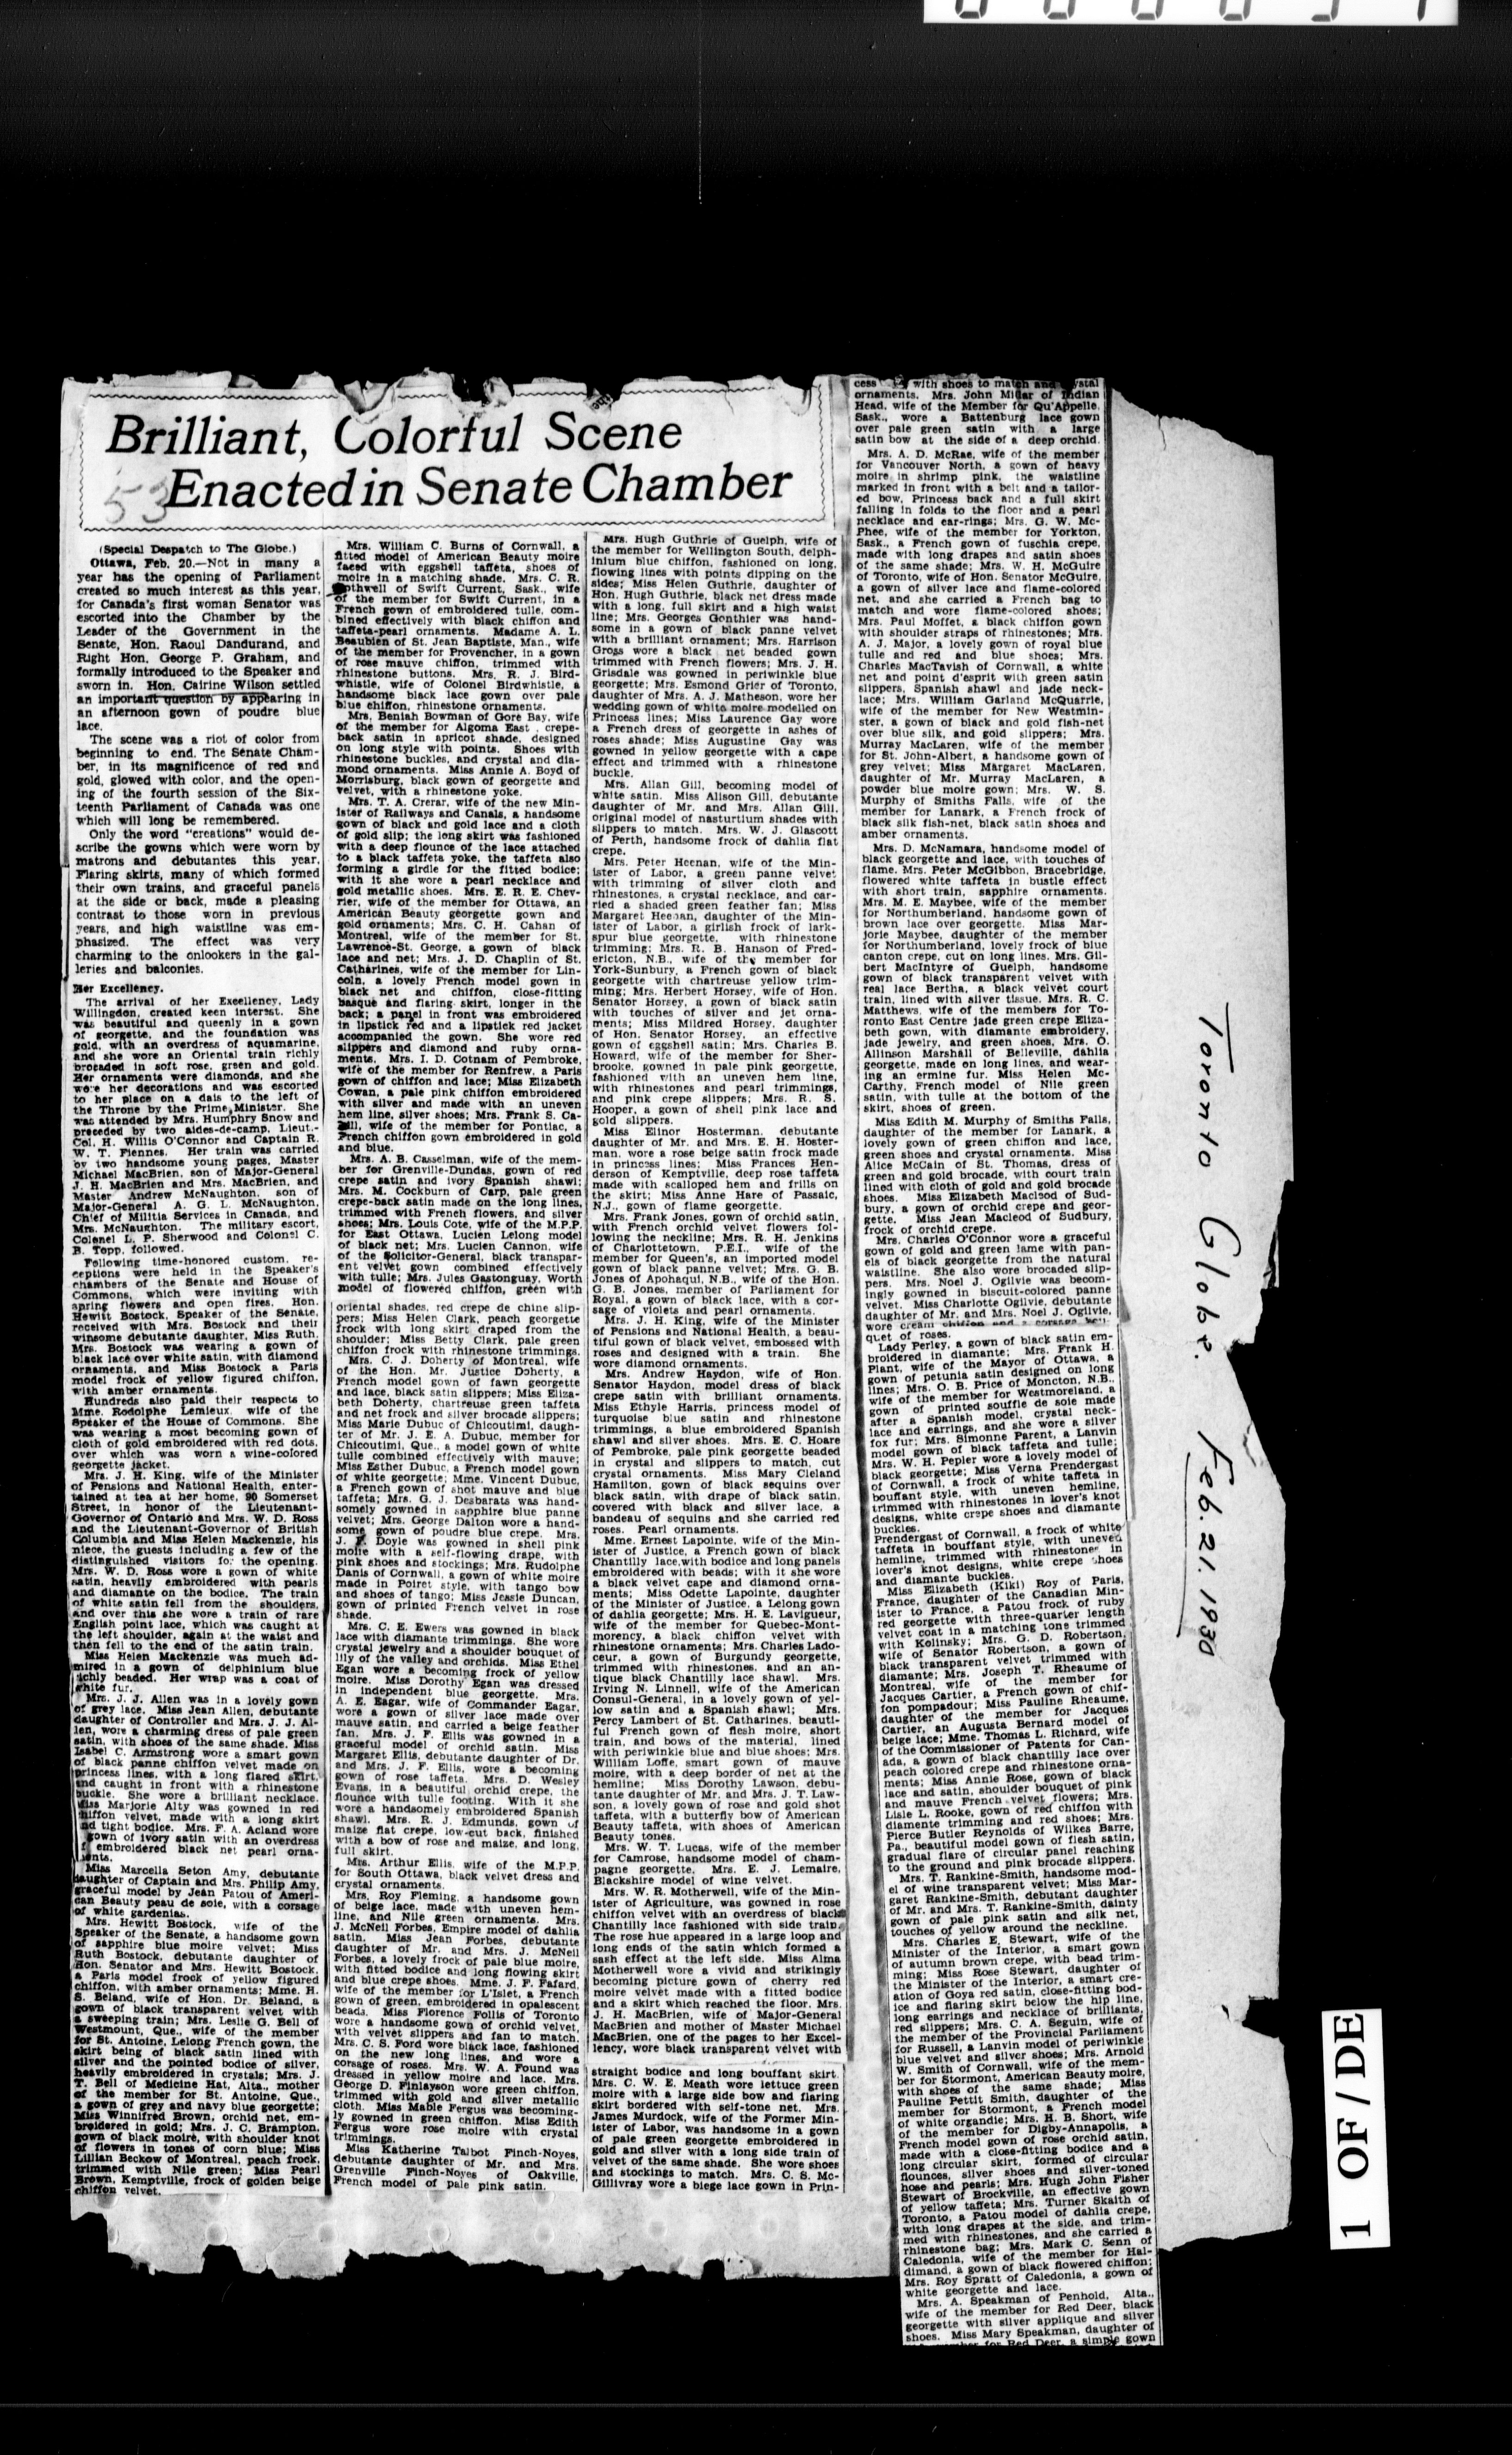 Brilliant, Colorful Scene
Enacted in Senate Chamber
53
(Special Despatch to The Globe.)
Ottawa, Feb. 20.—Not in many a
year has the opening of Parliament
created so much interest as this year,
for Canada's first woman Senator was
escorted into the Chamber by the
Leader of the Government in the
Senate, Hon. Raoul Dandurand, and
Right Hon. George P. Graham, and
formally introduced to the Speaker and
sworn in. Hon. Cairine Wilson settled
an important question by appearing in
an afternoon gown of poudre blue
lace.
The scene was a riot of color from
beginning to end. The Senate Cham-
ber, in its magnificence of red and
gold, glowed with color, and the open-
ing of the fourth session of the Six-
teenth Parliament of Canada was one
which will long be remembered.
Only the word "creations" would de-
scribe the gowns which were worn by
matrons and debutantes this year.
Flaring skirts, many of which formed
their own trains, and graceful panels
at the side or back, made a pleasing
contrast to those worn in previous
years, and high waistline was em-
phasized. The effect was very
charming to the onlookers in the gal-
leries and balconies.
Her Excellency.
The arrival of her Excellency, Lady
Willingdon, created keen interest. She
was beautiful and queenly in a gown
of georgette, and the foundation was
gold, with an overdress of aquamarine,
and she wore an Oriental train richly
brocaded in soft rose, green and gold.
Her ornaments were diamonds, and she
wore her decorations and was escorted
to her place on a dais to the left of
the Throne by the Prime Minister. She
was attended by Mrs. Humphry Snow and
preceded by two aides-de-camp, Lieut.-
Col. H. Willis O'Connor and Captain R.
W. T. Fiennes. Her train was carried
by two handsome young pages, Master
Michael MacBrien, son of Major-General
J. H. MacBrien and Mrs. MacBrien, and
Master Andrew McNaughton, son of
Major-General A. G. L. McNaughton,
Chief of Militia Services in Canada, and
Mrs. McNaughton. The military escort,
Colonel L. P. Sherwood and Colonel C.
B. Topp, followed.
Following time-honored custom, re-
ceptions were held in the Speaker's
chambers of the Senate and House of
Commons, which were inviting with
spring flowers and open fires. Hon.
Hewitt Bostock, Speaker of the Senate,
received with Mrs. Bostock and their
winsome debutante daughter, Miss Ruth.
Mrs. Bostock was wearing a gown of
black lace over white satin, with diamond
ornaments, and Miss Bostock a Paris
model frock of yellow figured chiffon,
with amber ornaments.
Hundreds also paid their respects to
Mme. Rodolphe Lemieux, wife of the
Speaker of the House of Commons. She
was wearing a most becoming gown of
cloth of gold embroidered with red dots,
over which was worn a wine-colored
georgette jacket.
Mrs. J. H. King, wife of the Minister
of Pensions and National Health, enter-
tained at tea at her home, 90 Somerset
Street, in honor of the Lieutenant-
Governor of Ontario and Mrs. W. D. Ross
and the Lieutenant-Governor of British
Columbia and Miss Helen Mackenzie, his
niece, the guests including a few of the
distinguished visitors for the opening.
Mrs. W. D. Ross wore a gown of white
satin, heavily embroidered with pearls
and diamante on the bodice. The train
of white satin fell from the shoulders,
and over this she wore a train of rare
English point lace, which was caught at
the left shoulder, again at the waist and
then fell to the end of the satin train.
Miss Helen Mackenzie was much ad-
mired in a gown of delphinium blue
richly beaded. Her wrap was a coat of
white fur.
Mrs. J. J. Allen was in a lovely gown
of grey lace. Miss Jean Allen, debutante
daughter of Controller and Mrs. J. J. Al-
len, wore a charming dress of pale green
satin, with shoes of the same shade. Miss
Isabel C. Armstrong wore a smart gown
of black panne chiffon velvet made on
princess lines, with a long flared skirt,
and caught in front with a rhinestone
buckle. She wore a brilliant necklace.
Miss Marjorie Alty was gowned in red
chiffon velvet, made with a long skirt
and tight bodice. Mrs. F. A. Acland wore
gown of ivory satin with an overdress
embroidered black net pearl orna-
ments.
Miss Marcella Seton Amy, debutante
daughter of Captain and Mrs. Philip Amy,
graceful model by Jean Patou of Ameri-
can Beauty peau de soie, with a corsage
of white gardenias.
Mrs. Hewitt Bostock, wife of the
Speaker of the Senate, a handsome gown
of sapphire blue moire velvet; Miss
Ruth Bostock, debutante daughter of
Hon. Senator and Mrs. Hewitt Bostock,
a Paris model frock of yellow figured
chiffon, with amber ornaments; Mme. H.
S. Beland, wife of Hon. Dr. Beland, a
gown of black transparent velvet with
a sweeping train; Mrs. Leslie G. Bell of
Westmount, Que., wife of the member
for St. Antoine, Lelong French gown, the
skirt being of black satin lined with
silver and the pointed bodice of silver,
heavily embroidered in crystals; Mrs. J.
T. Bell of Medicine Hat, Alta., mother
of the member for St. Antoine, Que.,
a gown of grey and navy blue georgette;
Miss Winnifred Brown, orchid net, em-
broidered in gold; Mrs. J. C. Brampton,
gown of black moire, with shoulder knot
of flowers in tones of corn blue; Miss
Lillian Beckow of Montreal, peach frock,
trimmed with Nile green; Miss Pearl
Brown, Kemptville, frock of golden beige
chiffon velvet.
Mrs. William C. Burns of Cornwall, a
fitted model of American Beauty moire
faced with eggshell taffeta, shoes of
moire in a matching shade. Mrs. C. R.
othwell of Swift Current, Sask., wife
of the member for Swift Current, in a
French gown of embroidered tulle, com-
bined effectively with black chiffon and
taffeta-pearl ornaments. Madame A. L.
Beaubien of St. Jean Baptiste, Man., wife
of the member for Provencher, in a gown
of rose mauve chiffon, trimmed with
rhinestone buttons. Mrs. R. J. Bird-
whistle, wife of Colonel Birdwhistle, a
handsome black lace gown over pale
blue chiffon, rhinestone ornaments.
Mrs. Beniah Bowman of Gore Bay, wife
of the member for Algoma East, crepe-
back satin in apricot shade, designed
on long style with points. Shoes with
rhinestone buckles, and crystal and dia-
mond ornaments. Miss Annie A. Boyd of
Morrisburg, black gown of georgette and
velvet, with a rhinestone yoke.
Mrs. T. A. Crerar, wife of the new Min-
ister of Railways and Canals, a handsome
gown of black and gold lace and a cloth
of gold slip; the long skirt was fashioned
with a deep flounce of the lace attached
to a black taffeta yoke, the taffeta also
forming a girdle for the fitted bodice;
with it she wore a pearl necklace and
gold metallic shoes. Mrs. E. R. E. Chev-
rier, wife of the member for Ottawa, an
American Beauty georgette gown and
gold ornaments; Mrs. C. H. Cahan of
Montreal, wife of the member for St.
Lawrence-St. George, a gown of black
lace and net; Mrs. J. D. Chaplin of St.
Catharines, wife of the member for Lin-
coln, a lovely French model gown in
black net and chiffon, close-fitting
basque and flaring skirt, longer in the
back; a panel in front was embroidered
in lipstick red and a lipstick red jacket
accompanied the gown. She wore red
slippers and diamond and ruby orna-
ments. Mrs. I. D. Cotnam of Pembroke,
wife of the member for Renfrew, a Paris
gown of chiffon and lace; Miss Elizabeth
Cowan, a pale pink chiffon embroidered
with silver and made with an uneven
hem line, silver shoes; Mrs. Frank S. Ca-
hill, wife of the member for Pontiac, a
French chiffon gown embroidered in gold
and blue.
Mrs. A. B. Casselman, wife of the mem-
ber for Grenville-Dundas, gown of red
crepe satin and ivory Spanish shawl;
Mrs. M. Cockburn of Carp, pale green
crepe-back satin made on the long lines,
trimmed with French flowers, and silver
shoes; Mrs. Louis Cote, wife of the M.P.P.
for East Ottawa, Lucien Lelong model
of black net; Mrs. Lucien Cannon, wife
of the Solicitor-General, black transpar-
ent velvet gown combined effectively
with tulle; Mrs. Jules Gastonguay, Worth
model of flowered chiffon, green with
oriental shades, red crepe de chine slip-
pers; Miss Helen Clark, peach georgette
frock with long skirt draped from the
shoulder; Miss Betty Clark, pale green
chiffon frock with rhinestone trimmings.
Mrs. C. J. Doherty of Montreal, wife
of the Hon. Mr. Justice Doherty, a
French model gown of fawn georgette
and lace, black satin slippers; Miss Eliza-
beth Doherty, chartreuse green taffeta
and net frock and silver brocade slippers;
Miss Marie Dubuc of Chicoutimi, daugh-
ter of Mr. J. E. A. Dubuc, member for
Chicoutimi, Que., a model gown of white
tulle combined effectively with mauve;
Miss Esther Dubuc, a French model gown
of white georgette; Mme. Vincent Dubuc,
a French gown of shot mauve and blue
taffeta; Mrs. G. J. Desbarats was hand-
somely gowned in sapphire blue panne
velvet; Mrs. George Dalton wore a hand-
some gown of poudre blue crepe. Mrs.
J. F. Doyle was gowned in shell pink
moire with a self-flowing drape, with
pink shoes and stockings; Mrs. Rudolphe
Danis of Cornwall, a gown of white moire
made in Poiret style, with tango bow
and shoes of tango; Miss Jessie Duncan,
gown of printed French velvet in rose
shade.
Mrs. C. E. Ewers was gowned in black
lace with diamante trimmings. She wore
crystal jewelry and a shoulder bouquet of
lily of the valley and orchids. Miss Ethel
Egan wore a becoming frock of yellow
moire. Miss Dorothy Egan was dressed
in independent blue georgette. Mrs.
A. E. Eagar, wife of Commander Eagar,
wore a gown of silver lace made over
mauve satin, and carried a beige feather
fan. Mrs. J. F. Ellis was gowned in a
graceful model of orchid satin. Miss
Margaret Ellis, debutante daughter of Dr.
and Mrs. J. F. Ellis, wore a becoming
gown of rose taffeta. Mrs. D. Wesley
Evans, in a beautiful orchid crepe, the
flounce with tulle footing. With it she
wore a handsomely embroidered Spanish
shawl. Mrs. R. J. Edmunds, gown of
maize flat crepe, low-cut back, finished
with a bow of rose and maize, and long,
full skirt.
Mrs. Arthur Ellis, wife of the M.P.P.
for South Ottawa, black velvet dress and
crystal ornaments.
Mrs. Roy Fleming, a handsome gown
of beige lace, made with uneven hem-
line, and Nile green ornaments. Mrs.
J. McNeil Forbes, Empire model of dahlia
satin. Miss Jean Forbes, debutante
daughter of Mr. and Mrs. J. McNeil
Forbes, a lovely frock of pale blue moire,
with fitted bodice and long flowing skirt
and blue crepe shoes. Mme. J. F. Fafard,
wife of the member for L'Islet, a French
gown of green, embroidered in opalescent
beads. Miss Florence Follis of Toronto
wore a handsome gown of orchid velvet,
with velvet slippers and fan to match.
Mrs. C. S. Ford wore black lace, fashioned
on the new long lines, and wore a
corsage of roses. Mrs. W. A. Found was
dressed in yellow moire and lace. Mrs.
George D. Finlayson wore green chiffon,
trimmed with gold and silver metallic
cloth. Miss Mable Fergus was becoming-
ly gowned in green chiffon. Miss Edith
Fergus wore rose moire with crystal
trimmings.
Miss Katherine Talbot Finch-Noyes,
debutante daughter of Mr. and Mrs.
Grenville Finch-Noyes of Oakville,
French model of pale pink satin.
Mrs. Hugh Guthrie of Guelph, wife of
the member for Wellington South, delph-
inium blue chiffon, fashioned on long,
flowing lines with points dipping on the
sides; Miss Helen Guthrie, daughter of
Hon. Hugh Guthrie, black net dress made
with a long, full skirt and a high waist
line; Mrs. Georges Gonthier was hand-
some in a gown of black panne velvet
with a brilliant ornament; Mrs. Harrison
Gross wore a black net beaded gown
trimmed with French flowers; Mrs. J. H.
Grisdale was gowned in periwinkle blue
georgette; Mrs. Esmond Grier of Toronto,
daughter of Mrs. A. J. Matheson, wore her
wedding gown of white moire modelled on
Princess lines; Miss Laurence Gay wore
a French dress of georgette in ashes of
roses shade; Miss Augustine Gay was
gowned in yellow georgette with a cape
effect and trimmed with a rhinestone
buckle.
Mrs. Allan Gill, becoming model of
white satin. Miss Alison Gill, debutante
daughter of Mr. and Mrs. Allan Gill,
original model of nasturtium shades with
slippers to match. Mrs. W. J. Glascott
of Perth, handsome frock of dahlia flat
crepe.
Mrs. Peter Heenan, wife of the Min-
ister of Labor, a green panne velvet
with trimming of silver cloth and
rhinestones, a crystal necklace, and car-
ried a shaded green feather fan; Miss
Margaret Heenan, daughter of the Min-
ister of Labor, a girlish frock of lark-
spur blue georgette, with rhinestone
trimming; Mrs. R. B. Hanson of Fred-
ericton, N.B., wife of the member for
York-Sunbury, a French gown of black
georgette with chartreuse yellow trim-
ming; Mrs. Herbert Horsey, wife of Hon.
Senator Horsey, a gown of black satin
with touches of silver and jet orna-
ments; Miss Mildred Horsey, daughter
of Hon. Senator Horsey, an effective
gown of eggshell satin; Mrs. Charles B.
Howard, wife of the member for Sher-
brooke, gowned in pale pink georgette,
fashioned with an uneven hem line,
with rhinestones and pearl trimmings,
and pink crepe slippers; Mrs. R. S.
Hooper, a gown of shell pink lace and
gold slippers.
Miss Elinor Hosterman, debutante
daughter of Mr. and Mrs. E. H. Hoster-
man, wore a rose beige satin frock made
in princess lines; Miss Frances Hen-
derson of Kemptville, deep rose taffeta
made with scalloped hem and frills on
the skirt; Miss Anne Hare of Passaic,
N.J., gown of flame georgette.
Mrs. Frank Jones, gown of orchid satin,
with French orchid velvet flowers fol-
lowing the neckline; Mrs. R. H. Jenkins
of Charlottetown, P.E.I., wife of the
member for Queen's, an imported model
gown of black panne velvet; Mrs. G. B.
Jones of Apohaqui, N.B., wife of the Hon.
G. B. Jones, member of Parliament for
Royal, a gown of black lace, with a cor-
sage of violets and pearl ornaments.
Mrs. J. H. King, wife of the Minister
of Pensions and National Health, a beau-
tiful gown of black velvet, embossed with
roses and designed with a train. She
wore diamond ornaments.
Mrs. Andrew Haydon, wife of Hon.
Senator Haydon, model dress of black
crepe satin with brilliant ornaments.
Miss Ethyle Harris, princess model of
turquoise blue satin and rhinestone
trimmings, a blue embroidered Spanish
shawl and silver shoes. Mrs. E. C. Hoare
of Pembroke, pale pink georgette beaded
in crystal and slippers to match, cut
crystal ornaments. Miss Mary Cleland
Hamilton, gown of black sequins over
black satin, with drape of black satin,
covered with black and silver lace, a
bandeau of sequins and she carried red
roses. Pearl ornaments.
Mme. Ernest Lapointe, wife of the Min-
ister of Justice, a French gown of black
Chantilly lace, with bodice and long panels
embroidered with beads; with it she wore
a black velvet cape and diamond orna-
ments; Miss Odette Lapointe, daughter
of the Minister of Justice, a Lelong gown
of dahlia georgette; Mrs. H. E. Lavigueur,
wife of the member for Quebec-Mont-
morency, a black chiffon velvet with
rhinestone ornaments; Mrs. Charles Lado-
ceur, a gown of Burgundy georgette,
trimmed with rhinestones, and an an-
tique black Chantilly lace shawl. Mrs.
Irving N. Linnell, wife of the American
Consul-General, in a lovely gown of yel-
low satin and a Spanish shawl; Mrs.
Percy Lambert of St. Catharines, beauti-
ful French gown of flesh moire, short
train, and bows of the material, lined
with periwinkle blue and blue shoes; Mrs.
William Loffe, smart gown of mauve
moire, with a deep border of net at the
hemline; Miss Dorothy Lawson, debu-
tante daughter of Mr. and Mrs. J. T. Law-
son, a lovely gown of rose and gold shot
taffeta, with a butterfly bow of American
Beauty taffeta, with shoes of American
Beauty tones.
Mrs. W. T. Lucas, wife of the member
for Camrose, handsome model of cham-
pagne georgette. Mrs. E. J. Lemaire,
Blackshire model of wine velvet.
Mrs. W. R. Motherwell, wife of the Min-
ister of Agriculture, was gowned in rose
chiffon velvet with an overdress of black
Chantilly lace fashioned with side train.
The rose hue appeared in a large loop and
long ends of the satin which formed a
sash effect at the left side. Miss Alma
Motherwell wore a vivid and strikingly
becoming picture gown of cherry red
moire velvet made with a fitted bodice
and a skirt which reached the floor. Mrs.
J. H. MacBrien, wife of Major-General
MacBrien and mother of Master Michael
MacBrien, one of the pages to her Excel-
lency, wore black transparent velvet with
straight bodice and long bouffant skirt.
Mrs. C. W. E. Meath wore lettuce green
moire with a large side bow and flaring
skirt bordered with self-tone net. Mrs.
James Murdock, wife of the Former Min-
ister of Labor, was handsome in a gown
of pale green georgette embroidered in
gold and silver with a long side train of
velvet of the same shade. She wore shoes
and stockings to match. Mrs. C. S. Mc-
Gillivray wore a biege lace gown in Prin-
cess with shoes to match and crystal
ornaments. Mrs. John Millar of Indian
Head, wife of the Member for Qu'Appelle,
Sask., wore a Battenburg lace gown
over pale green satin with a large
satin bow at the side of a deep orchid.
Mrs. A. D. McRae, wife of the member
for Vancouver North, a gown of heavy
moire in shrimp pink, the waistline
marked in front with a belt and a tailor-
ed bow, Princess back and a full skirt
falling in folds to the floor and a pearl
necklace and ear-rings; Mrs. G. W. Mc-
Phee, wife of the member for Yorkton,
Sask., a French gown of fuschia crepe,
made with long drapes and satin shoes
of the same shade; Mrs. W. H. McGuire
of Toronto, wife of Hon. Senator McGuire,
a gown of silver lace and flame-colored
net, and she carried a French bag to
match and wore flame-colored shoes;
Mrs. Paul Moffet, a black chiffon gown
with shoulder straps of rhinestones; Mrs.
A. J. Major, a lovely gown of royal blue
tulle and red and blue shoes; Mrs.
Charles MacTavish of Cornwall, a white
net and point d'esprit with green satin
slippers, Spanish shawl and jade neck-
lace; Mrs. William Garland McQuarrie,
wife of the member for New Westmin-
ster, a gown of black and gold fish-net
over blue silk, and gold slippers; Mrs.
Murray MacLaren, wife of the member
for St. John-Albert, a handsome gown of
grey velvet; Miss Margaret MacLaren,
daughter of Mr. Murray MacLaren, a
powder blue moire gown; Mrs. W. S.
Murphy of Smiths Falls, wife of the
member for Lanark, a French frock of
black silk fish-net, black satin shoes and
amber ornaments.
Mrs. D. McNamara, handsome model of
black georgette and lace, with touches of
flame. Mrs. Peter McGibbon, Bracebridge,
flowered white taffeta in bustle effect
with short train, sapphire ornaments.
Mrs. M. E. Maybee, wife of the member
for Northumberland, handsome gown of
brown lace over georgette. Miss Mar-
jorie Maybee, daughter of the member
for Northumberland, lovely frock of blue
canton crepe, cut on long lines. Mrs. Gil-
bert MacIntyre of Guelph, handsome
gown of black transparent velvet with
real lace Bertha, a black velvet court
train, lined with silver tissue. Mrs. R. C.
Matthews, wife of the members for To-
ronto East Centre jade green crepe Eliza-
beth gown, with diamante embroidery,
jade jewelry, and green shoes, Mrs. O.
Allinson Marshall of Belleville, dahlia
georgette, made on long lines, and wear-
ing an ermine fur. Miss Helen Mc-
Carthy, French model of Nile green
satin, with tulle at the bottom of the
skirt, shoes of green.
Miss Edith M. Murphy of Smiths Falls,
daughter of the member for Lanark, a
lovely gown of green chiffon and lace,
green shoes and crystal ornaments. Miss
Alice McCain of St. Thomas, dress of
green and gold brocade, with court train
lined with cloth of gold and gold brocade
shoes. Miss Elizabeth Macleod of Sud-
bury, a gown of orchid crepe and geor-
gette. Miss Jean Macleod of Sudbury,
frock of orchid crepe.
Mrs. Charles O'Connor wore a graceful
gown of gold and green lame with pan-
els of black georgette from the natural
waistline. She also wore brocaded slip-
pers. Mrs. Noel J. Ogilvie was becom-
ingly gowned in biscuit-colored panne
velvet. Miss Charlotte Ogilvie, debutante
daughter of Mr. and Mrs. Noel J. Ogilvie,
wore cream chiffon and a corsage bou-
quet of roses.
Lady Perley, a gown of black satin em-
broidered in diamante; Mrs. Frank H.
Plant, wife of the Mayor of Ottawa, a
gown of petunia satin designed on long
lines; Mrs. O. B. Price of Moncton, N.B.,
wife of the member for Westmoreland, a
gown of printed souffle de soie made
after a Spanish model, crystal neck-
lace and earrings, and she wore a silver
fox fur; Mrs. Simonne Parent, a Lanvin
model gown of black taffeta and tulle;
Mrs. W. H. Pepler wore a lovely model of
black georgette; Miss Verna Prendergast
of Cornwall, a frock of white taffeta in
bouffant style, with uneven hemline,
trimmed with rhinestones in lover's knot
designs, white crepe shoes and diamante
buckles.
Prendergast of Cornwall, a frock of white
taffeta in bouffant style, with uneven
hemline, trimmed with rhinestones in
lover's knot designs, white crepe shoes
and diamante buckles.
Miss Elizabeth (Kiki) Roy of Paris,
France, daughter of the Canadian Min-
ister to France, a Patou frock of ruby
red georgette with three-quarter length
velvet coat in a matching tone trimmed
with Kolinsky; Mrs. G. D. Robertson,
wife of Senator Robertson, a gown of
black transparent velvet trimmed with
diamante; Mrs. Joseph T. Rheaume of
Montreal, wife of the member for
Jacques Cartier, a French gown of chif-
fon pompadour; Miss Pauline Rheaume,
daughter of the member for Jacques
Cartier, an Augusta Bernard model of
beige lace; Mme. Thomas L. Richard, wife
of the Commissioner of Patents for Can-
ada, a gown of black chantilly lace over
peach colored crepe and rhinestone orna-
ments; Miss Annie Rose, gown of black
lace and satin, shoulder bouquet of pink
and mauve French velvet flowers; Mrs.
Lisle L. Rooke, gown of red chiffon with
diamente trimming and red shoes; Mrs.
Pierce Butler Reynolds of Wilkes Barre,
Pa., beautiful model gown of flesh satin,
gradual flare of circular panel reaching
to the ground and pink brocade slippers.
Mrs. T. Rankine-Smith, handsome mod-
el of wine transparent velvet; Miss Mar-
garet Rankine-Smith, debutant daughter
of Mr. and Mrs. T. Rankine-Smith, dainty
gown of pale pink satin and silk net,
touches of yellow around the neckline.
Mrs. Charles E. Stewart, wife of the
Minister of the Interior, a smart gown
of autumn brown crepe, with bead trim-
ming; Miss Rose Stewart, daughter of
the Minister of the Interior, a smart cre-
ation of Goya red satin, close-fitting bod-
ice and flaring skirt below the hip line,
long earrings and necklace of brilliants,
red slippers; Mrs. C. A. Seguin, wife of
the member of the Provincial Parliament
for Russell, a Lanvin model of periwinkle
blue velvet and silver shoes; Mrs. Arnold
W. Smith of Cornwall, wife of the mem-
ber for Stormont, American Beauty moire,
with shoes of the same shade; Miss
Pauline Pettit Smith, daughter of the
member for Stormont, a French model
of white organdie; Mrs. H. B. Short, wife
of the member for Digby-Annapolis, a
French model gown of rose orchid satin,
made with a close-fitting bodice and a
long circular skirt, formed of circular
flounces, silver shoes and silver-toned
hose and pearls; Mrs. Hugh John Fisher
Stewart of Brockville, an effective gown
of yellow taffeta; Mrs. Turner Skaith of
Toronto, a Patou model of dahlia crepe,
with long drapes at the side, and trim-
med with rhinestones, and she carried a
rhinestone bag; Mrs. Mark C. Senn of
Caledonia, wife of the member for Hal-
dimand, a gown of black flowered chiffon;
Mrs. Roy Spratt of Caledonia, a gown of
white georgette and lace.
Mrs. A. Speakman of Penhold, Alta.,
wife of the member for Red Deer, black
georgette with silver applique and silver
shoes. Miss Mary Speakman, daughter of
for Red Deer, a simple gown
Toronto Globe. Feb. 21. 1930
1 OF / DE